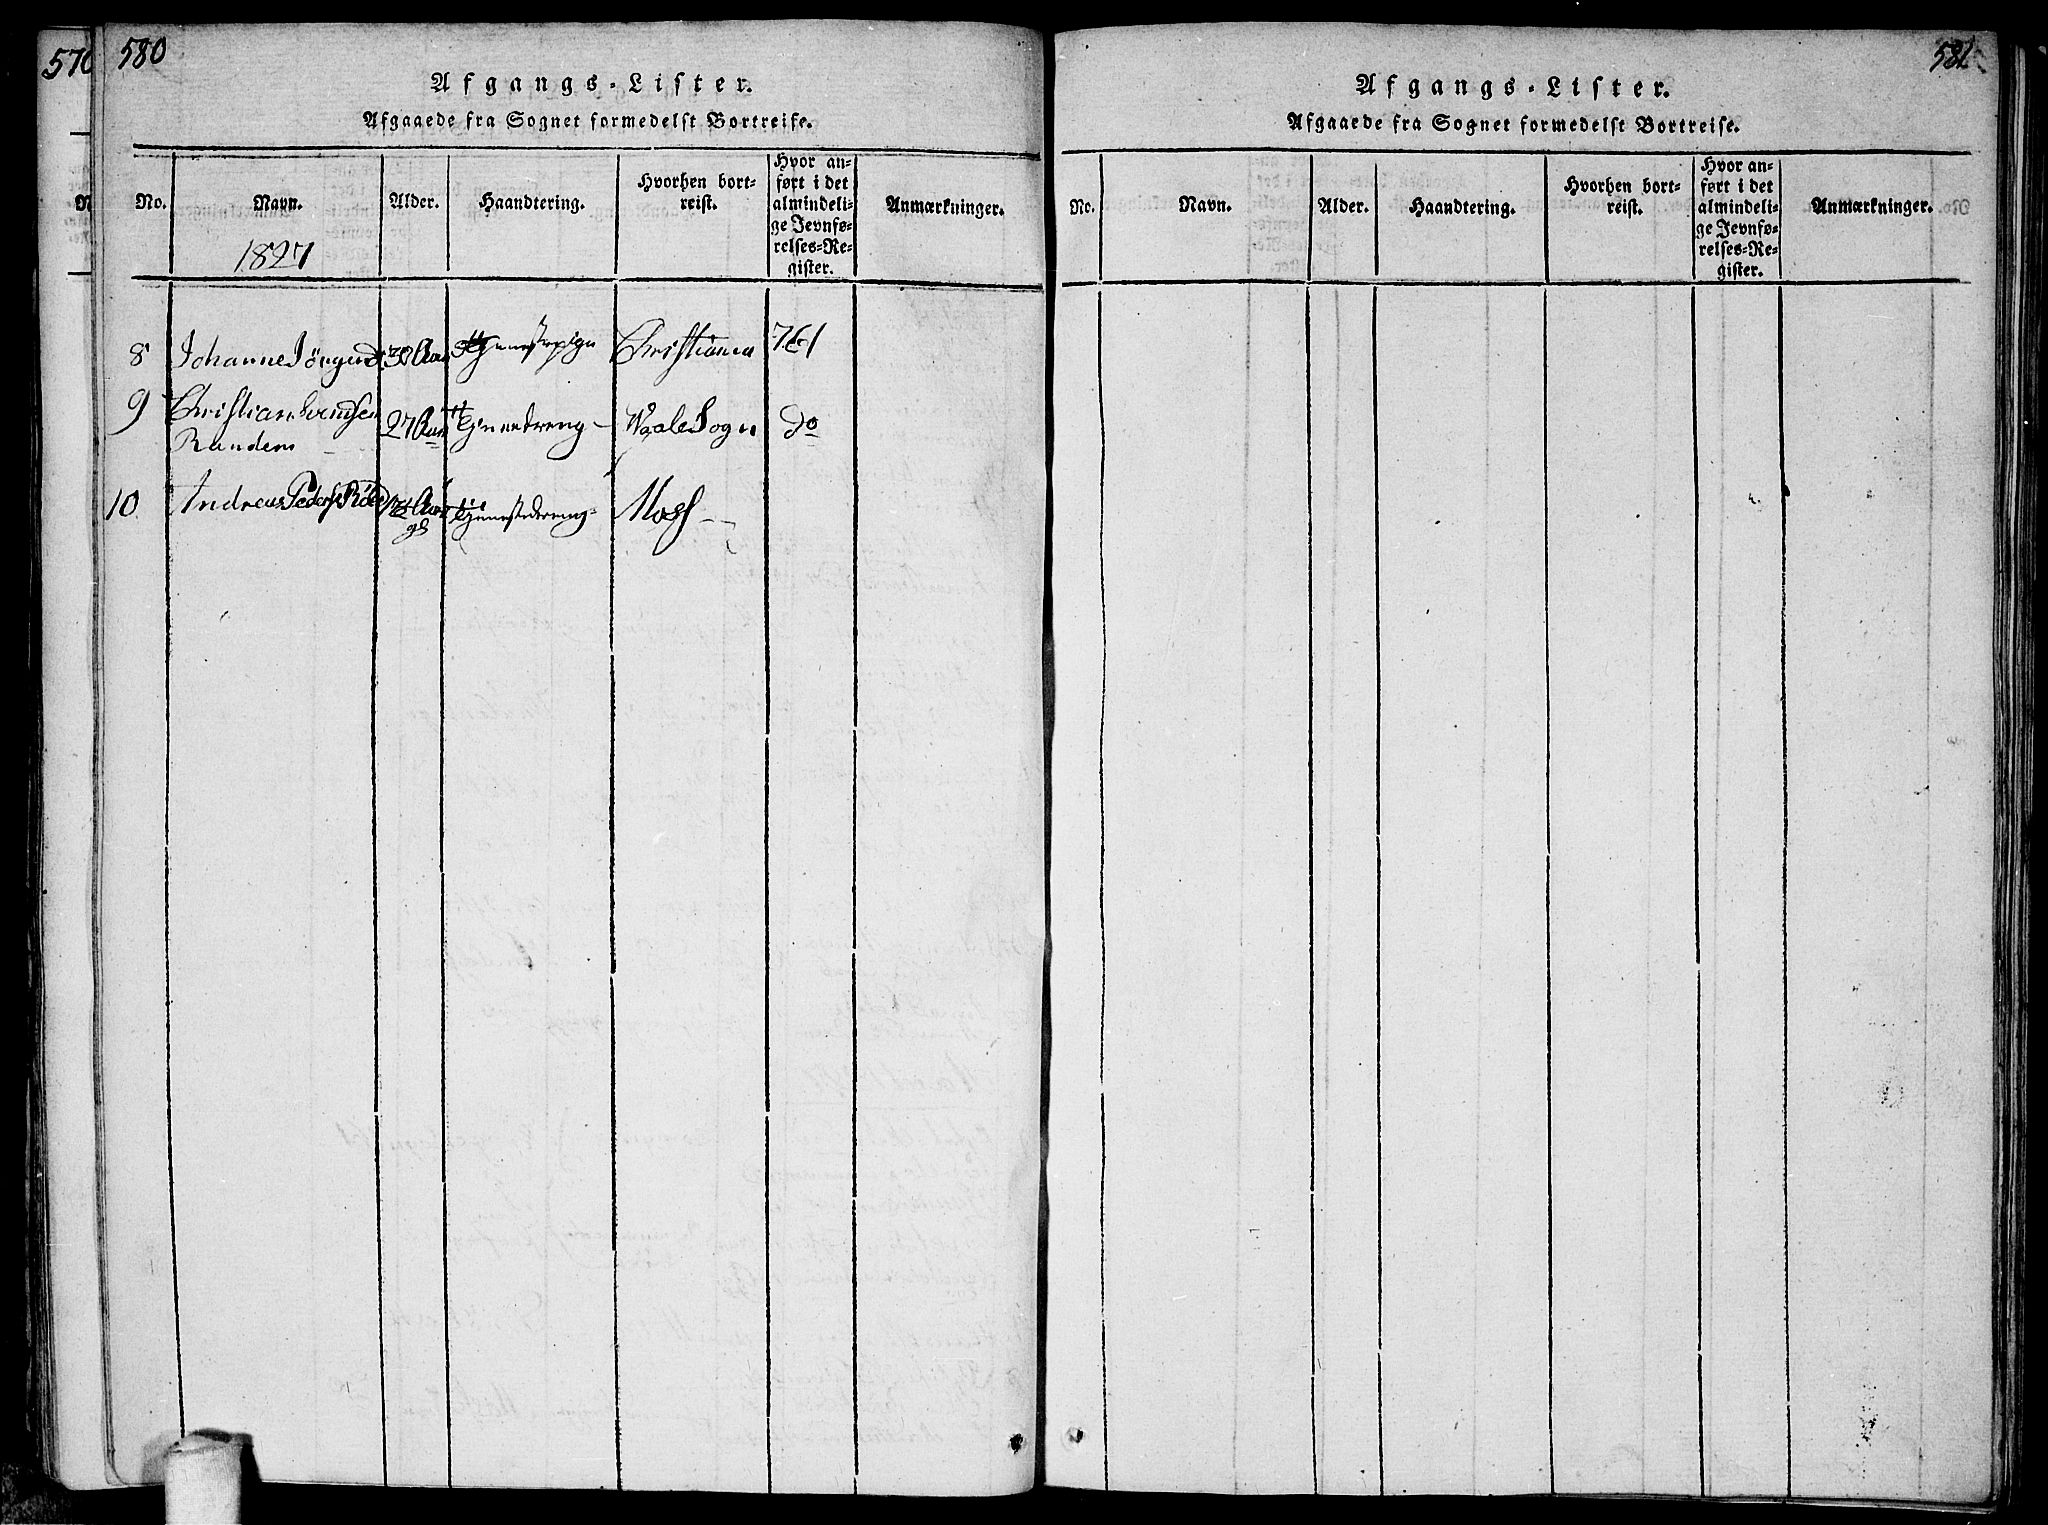 570
580
Afgangs-Lister.
Afgaaede fra Sognet formedelst Bortreise.
No.
Navn.
Alder.
Haandtering.
Hvorhen bort-
reist.
Hvor an-
ført i det
almindeli-
ge Jevnfø-
relses-Re-
gister.
Anmærkninger.
1827
8 Johanne Jörgensd. Tjenestepige Christiania 761
9 Christian
Randem 27 Aar Tjenestedreng Vaale Sogn do
10 Andreas Peders. Aar Tjenestedreng Moss
gl
581
Afgangs-Lister.
Afgaaede fra Sognet formedelst Bortreise.
No.
Navn.
Alder.
Haandtering.
Hvorhen bort-
reist.
Hvor an-
ført i det
almindeli-
ge Jevnfø-
relses-Re-
gister.
Anmærkninger.